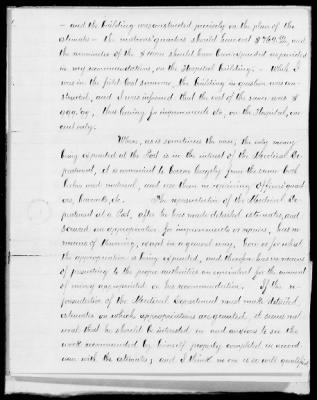 - and the building was constructed precisely on the plan of the
estimate - the matrons quarters should have cost $ 769.22, and
the remainder of the $1000 should have been expended as specified
in my recommendations, on the Hospital building; - While I
was in the field last summer, the building in question was con-
structed, and I was informed that the cost of the same was $
999.99, thus leaving for improvements etc, on the Hospital, one
cent only.
When, as is sometimes the case, the only money
being expended at the Post is in the interest of the Medical De-
partment, it is convenient to borrow largely from the same both
labor and material, and use them in repairing officers quart-
ers, barracks, etc. The representative of the Medical De-
partment at a Post, after he has made detailed estimates, and
secured an appropriation for improvements or repairs, has no
means of knowing, except in a general way, how or for what
the appropriation is being expended, and therefore has no means
of presenting to the proper authorities an equivalent for the amount
of money appropriated on his recommendation. If the re-
presentative of the Medical Department must make detailed
estimates on which appropriations are granted, it seems nat-
ural that he should be interested in and anxious to see the
work recommended by himself properly completed in accord-
ance with the estimates; and I think no one is so well qualified